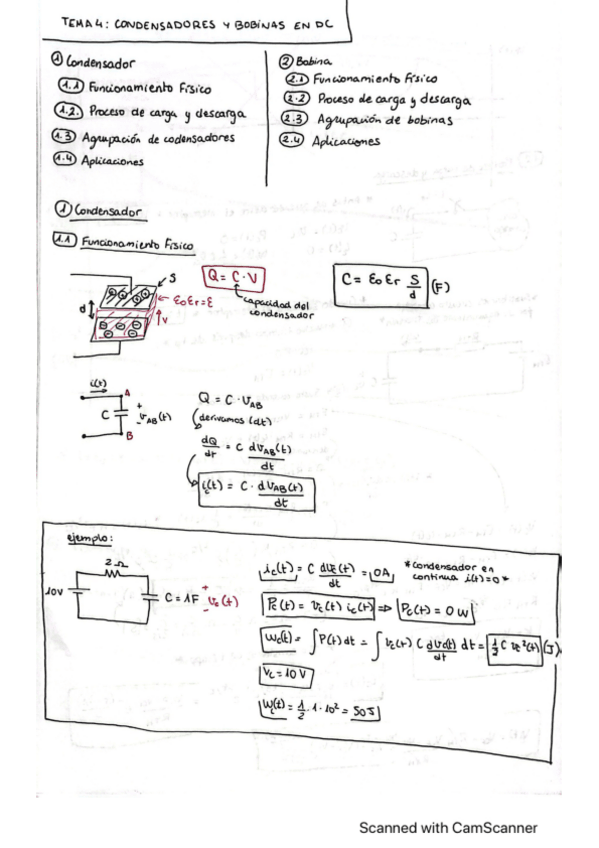 TEMA 4: CONDENSADORES Y BOBINAS EN DC
① Condensador
1.1 Funcionamiento Físico
1.2. Proceso de carga y descarga
1.3 Agrupación de codensadores
1.4 Aplicaciones
② Bobina
2.1 Funcionamiento Físico
2.2 Proceso de carga y descarga
2.3 Agrupación de bobinas
2.4 Aplicaciones
① Condensador
1.1 Funcionamiento Físico
S
ε0 εr = ε
d
V
Q = C · V
capacidad del
condensador
C = ε0 εr S/d (F)
i(t)
A
C
+
- VAB(t)
B
Q = C · VAB
(derivamos (dt)
dQ/dt = C dVAB(t)/dt
ic(t) = C · dVAB(t)/dt
ejemplo:
2 Ω
10V
C = 1F
+
- Vc(t)
ic(t) = C dVc(t)/dt = 0A
*Condensador en
continua i(t)=0*
Pc(t) = Vc(t) ic(t) ⇒ Pc(t) = 0 W
Wc(t) = ∫P(t) dt = ∫Vc(t) C dVc(t)/dt dt = 1/2 C Vc²(t) (J)
Vc = 10 V
Wc(t) = 1/2 · 1 · 10² = 50J
Scanned with CamScanner